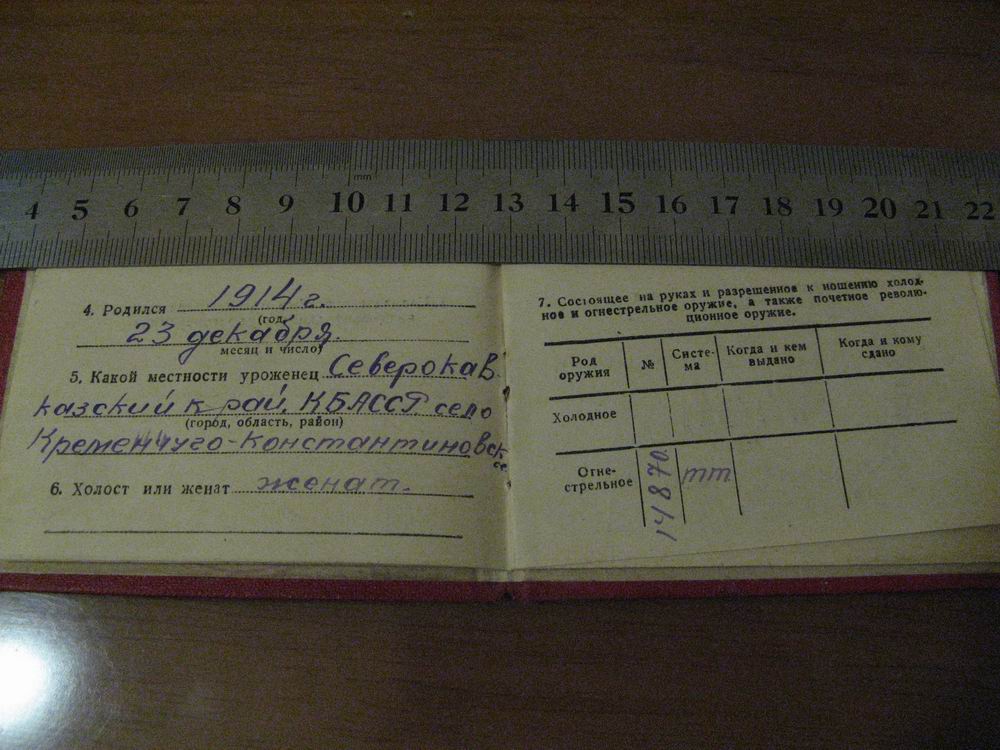 mm
4 5 6 7 8 9 10 11 12 13 14 15 16 17 18 19 20 21 22
4. Родился 1914 г.
(год,
23 декабря.
месяц и число)
5. Какой местности уроженец Северокав
казский край, КБАССР село
(город, область, район)
Кременчуго-Константиновск
6. Холост или женат женат.
7. Состоящее на руках и разрешенное к ношению холод-
ное и огнестрельное оружие, а также почетное револю-
ционное оружие.
Род оружия № Систе-ма Когда и кем выдано Когда и кому сдано
Холодное
Огне-стрельное 14870 тт